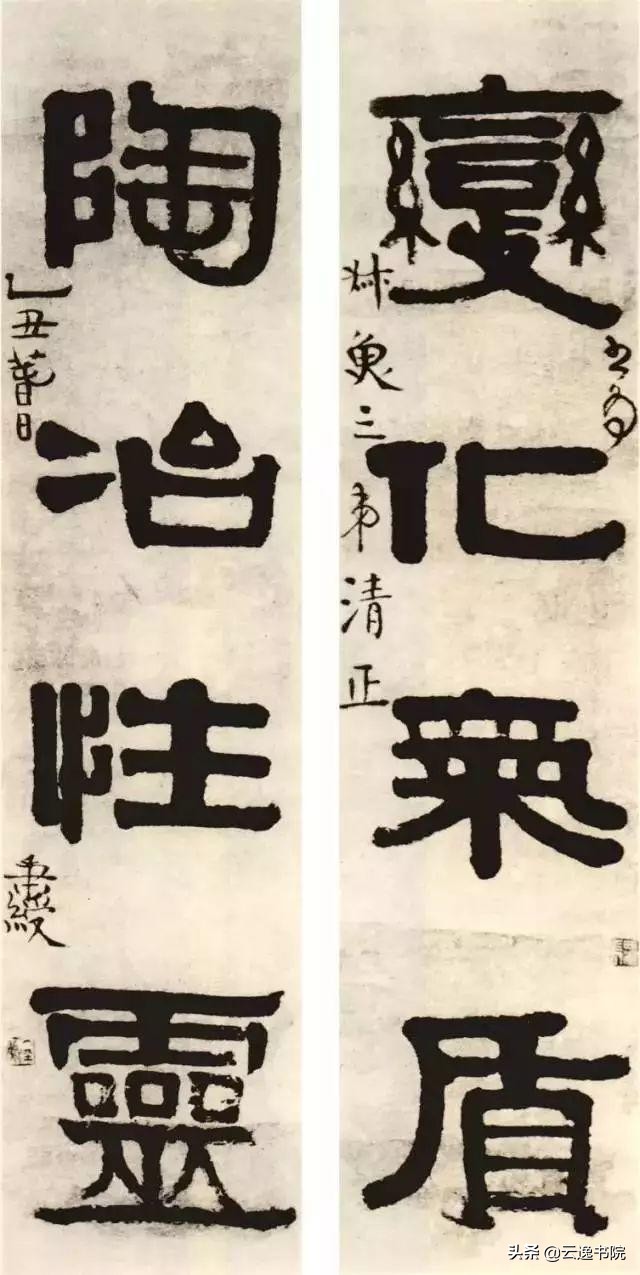 變化氣質
書為
三弟清正
陶冶性靈
乙丑萅日
秉綬
头条 @云逸书院